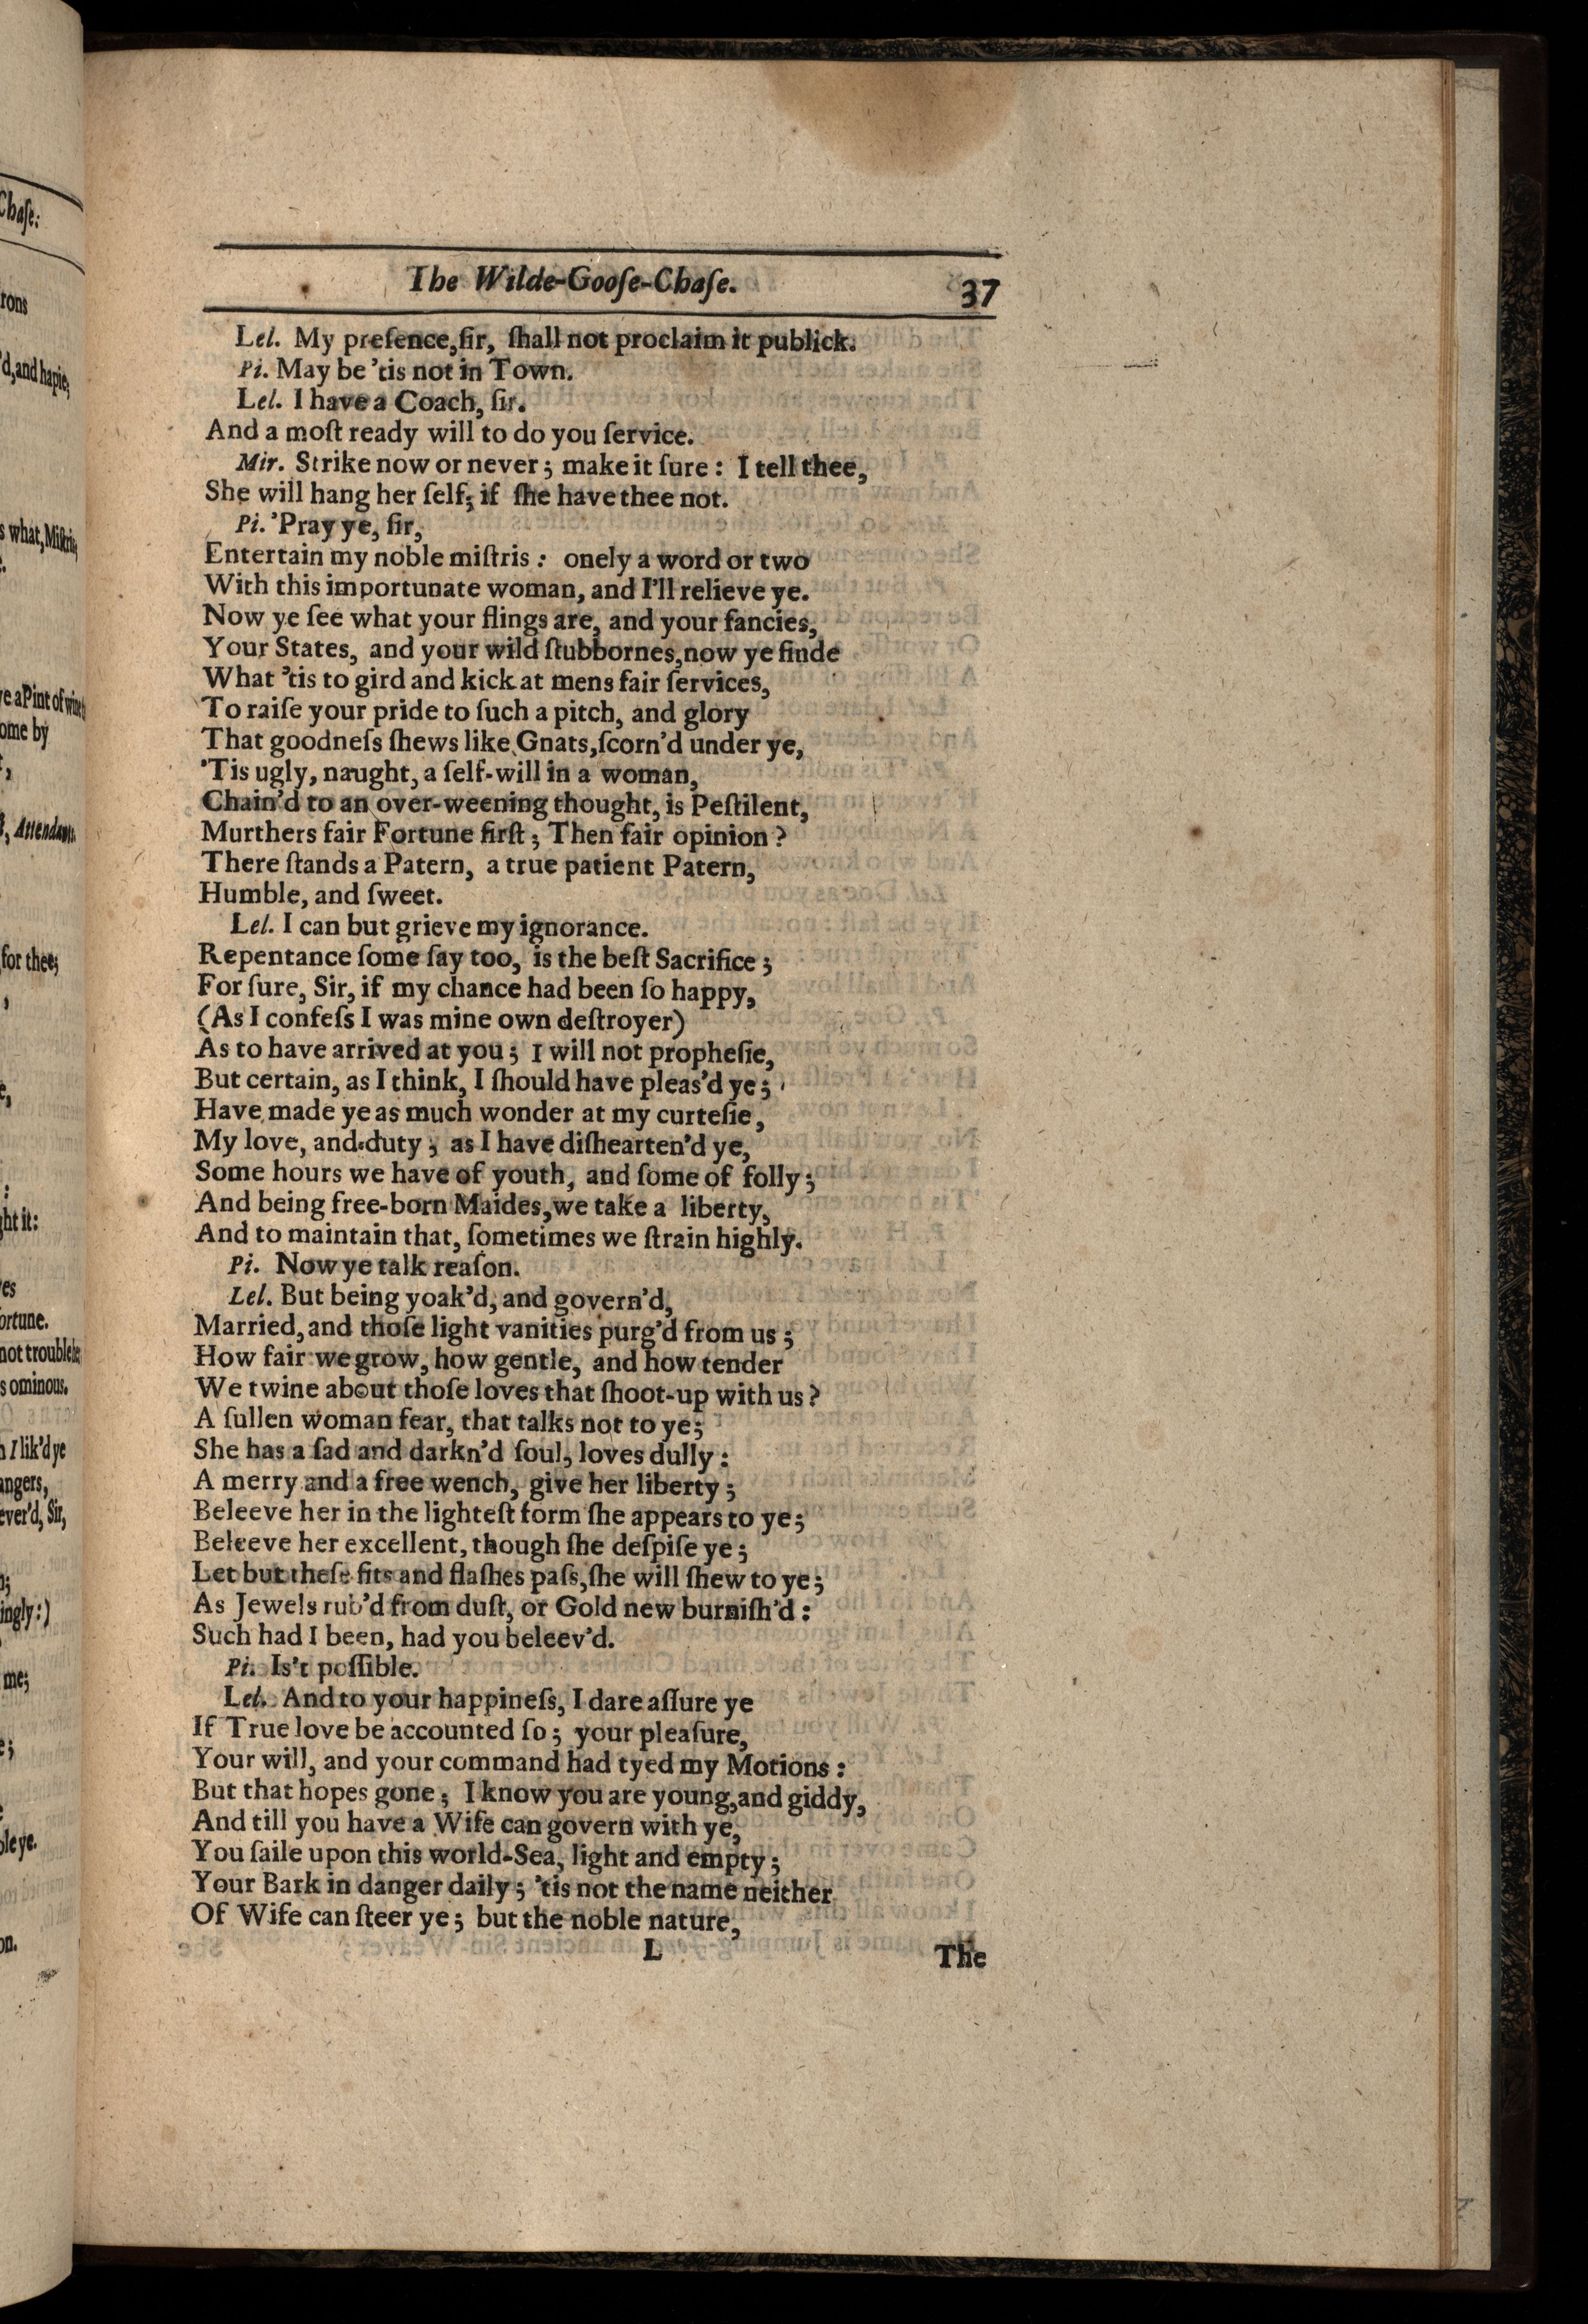 The Wilde-Gooſe-Chaſe. 37
Lel. My preſence,ſir, ſhall not proclaim it publick.
Pi. May be 'tis not in Town.
Lel. I have a Coach, ſir.
And a moſt ready will to do you ſervice.
Mir. Strike now or never; make it ſure: I tell thee,
She will hang her ſelf; if ſhe have thee not.
Pi. 'Pray ye, ſir,
Entertain my noble miſtris: onely a word or two
With this importunate woman, and I'll relieve ye.
Now ye ſee what your flings are, and your fancies,
Your States, and your wild ſtubbornes,now ye finde
What 'tis to gird and kick at mens fair ſervices,
To raiſe your pride to ſuch a pitch, and glory
That goodneſs ſhews like Gnats,ſcorn'd under ye,
'Tis ugly, naught, a ſelf-will in a woman,
Chain'd to an over-weening thought, is Peſtilent,
Murthers fair Fortune firſt; Then fair opinion?
There ſtands a Patern, a true patient Patern,
Humble, and ſweet.
Lel. I can but grieve my ignorance.
Repentance ſome ſay too, is the beſt Sacrifice;
For ſure, Sir, if my chance had been ſo happy,
(As I confeſs I was mine own deſtroyer)
As to have arrived at you; I will not propheſie,
But certain, as I think, I ſhould have pleas'd ye;
Have made ye as much wonder at my curteſie,
My love, and duty; as I have diſhearten'd ye,
Some hours we have of youth, and ſome of folly;
And being free-born Maides,we take a liberty,
And to maintain that, ſometimes we ſtrain highly.
Pi. Now ye talk reaſon.
Lel. But being yoak'd, and govern'd,
Married,and thoſe light vanities purg'd from us;
How fair we grow, how gentle, and how tender
We twine about thoſe loves that ſhoot-up with us?
A ſullen woman fear, that talks not to ye;
She has a ſad and darkn'd ſoul, loves dully:
A merry and a free wench, give her liberty;
Beleeve her in the lighteſt form ſhe appears to ye;
Beleeve her excellent, though ſhe deſpiſe ye;
Let but theſe fits and flaſhes paſs,ſhe will ſhew to ye;
As Jewels rub'd from duſt, or Gold new burniſh'd:
Such had I been, had you beleev'd.
Pi. Is't poſſible.
Lel. And to your happineſs, I dare aſſure ye
If True love be accounted ſo; your pleaſure,
Your will, and your command had tyed my Motions:
But that hopes gone; I know you are young,and giddy,
And till you have a Wife can govern with ye,
You ſaile upon this world-Sea, light and empty;
Your Bark in danger daily; 'tis not the name neither
Of Wife can ſteer ye; but the noble nature,
L The
Chaſe:
rons
'd,and hapie;
s what,Miſtris,
ve a Pint of wine
ome by
, Attendants.
for thee;
ght it:
ortune.
not trouble her
s ominous.
I lik'd ye
angers,
ever'd, Sir,
ingly:)
me;
ble ye.
on.